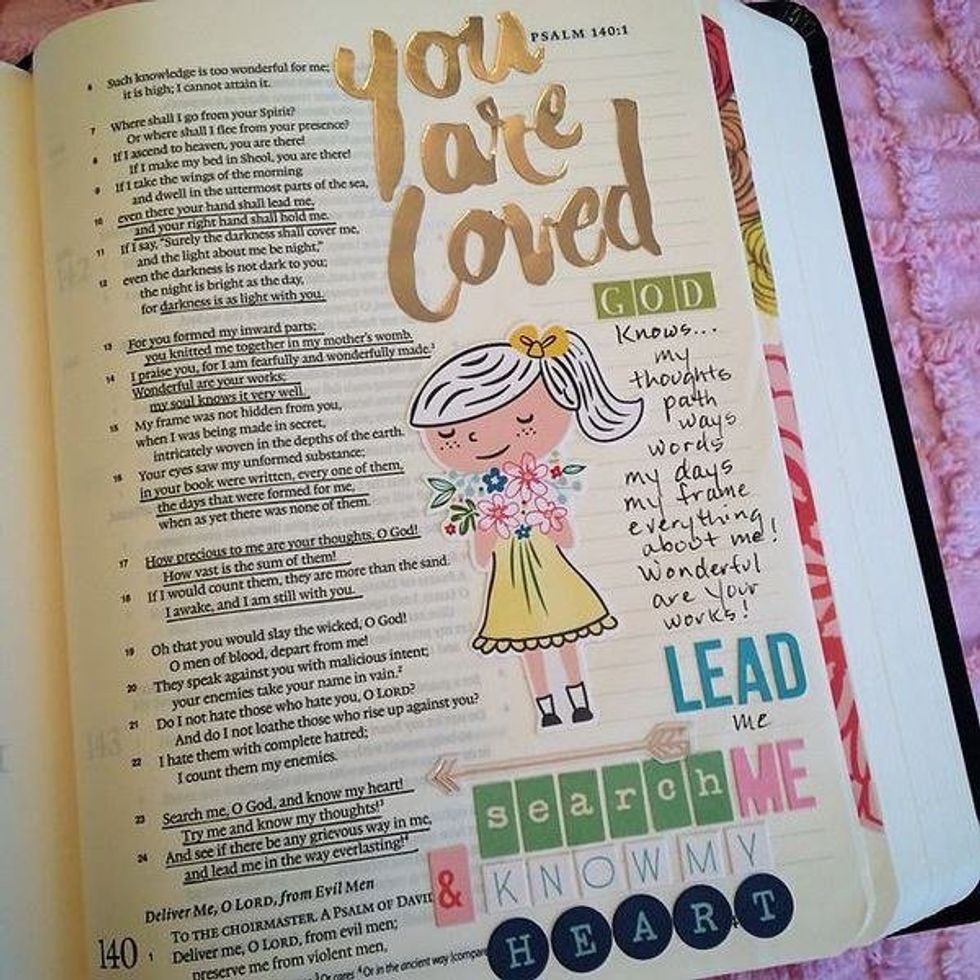 PSALM 140:1
6 Such knowledge is too wonderful for me;
it is high; I cannot attain it.
7 Where shall I go from your Spirit?
Or where shall I flee from your presence?
8 If I ascend to heaven, you are there!
If I make my bed in Sheol, you are there!
9 If I take the wings of the morning
and dwell in the uttermost parts of the sea,
10 even there your hand shall lead me,
and your right hand shall hold me.
11 If I say, “Surely the darkness shall cover me,
and the light about me be night,”
12 even the darkness is not dark to you;
the night is bright as the day,
for darkness is as light with you.
13 For you formed my inward parts;
you knitted me together in my mother's womb.
14 I praise you, for I am fearfully and wonderfully made.¹
Wonderful are your works;
my soul knows it very well.
15 My frame was not hidden from you,
when I was being made in secret,
intricately woven in the depths of the earth.
16 Your eyes saw my unformed substance;
in your book were written, every one of them,
the days that were formed for me,
when as yet there was none of them.
17 How precious to me are your thoughts, O God!
How vast is the sum of them!
18 If I would count them, they are more than the sand.
I awake, and I am still with you.
19 Oh that you would slay the wicked, O God!
O men of blood, depart from me!
20 They speak against you with malicious intent;
your enemies take your name in vain.²
21 Do I not hate those who hate you, O LORD?
And do I not loathe those who rise up against you?
22 I hate them with complete hatred;
I count them my enemies.
23 Search me, O God, and know my heart!
Try me and know my thoughts!³
24 And see if there be any grievous way in me,
and lead me in the way everlasting!⁴
Deliver Me, O LORD, from Evil Men
TO THE CHOIRMASTER. A PSALM OF DAVID
140 1 Deliver me, O LORD, from evil men;
preserve me from violent men,
³ Or cares ⁴ Or in the ancient way (compare
you
are
loved
GOD
Knows...
my
thoughts
path
ways
words
my days
my frame
everything
about me!
Wonderful
are your
works!
LEAD
me
search ME
& KNOW MY
HEART